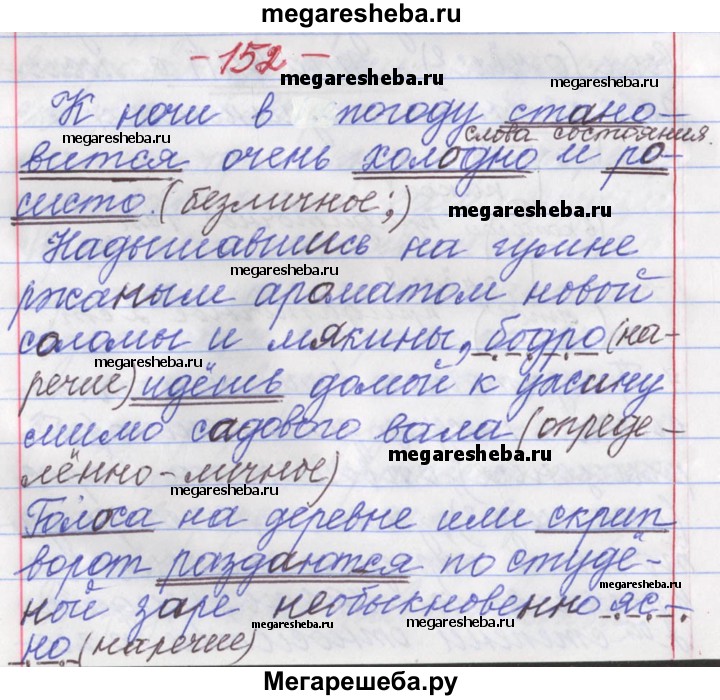 megaresheba.ru
- 152 -
megaresheba.ru
К ночи в погоду стано-
megaresheba.ru
слова состояния.
вится очень холодно и ро-
систо. (безличное;)
megaresheba.ru
Надышавшись на гумне
megaresheba.ru
ржаным ароматом новой
соломы и мякины, бодро (на-
megaresheba.ru
megaresheba.ru
речие) идёшь домой к ужину
мимо садового вала (опреде-
megaresheba.ru
лённо-личное)
megaresheba.ru
Голоса на деревне или скрип
ворот раздаются по студё-
megaresheba.ru
ной заре необыкновенно яс-
но (наречие)
megaresheba.ru
megaresheba.ru
Мегарешеба.ру